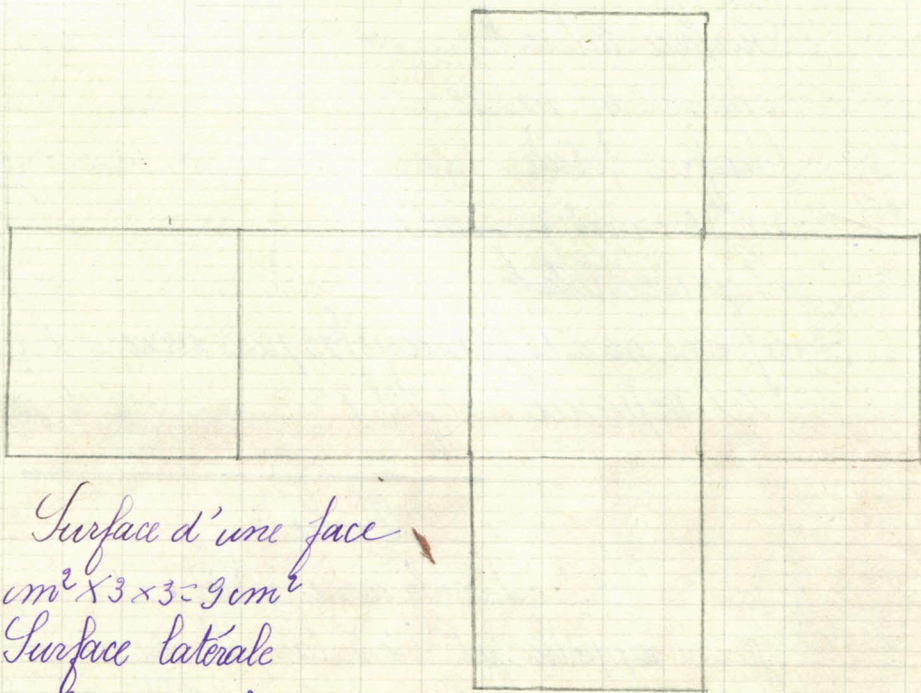 Surface d'une face
cm² × 3 × 3 = 9 cm²
Surface latérale